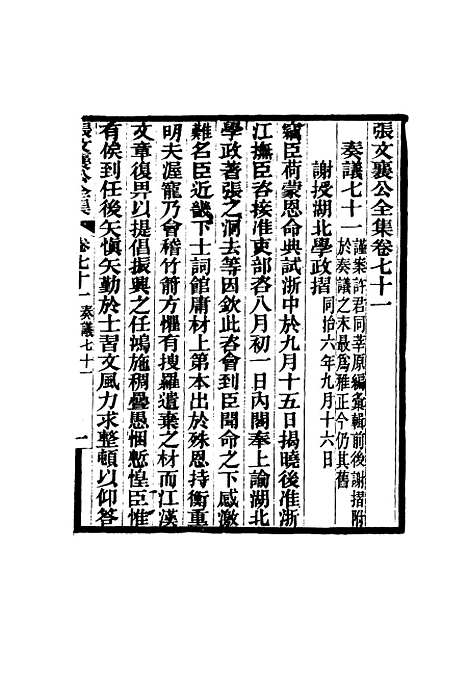 張文襄公全集卷七十一
奏議七十一
謹案許君同莘原編彙輯前後謝摺附
於奏議之末最為雅正今仍其舊
謝授湖北學政摺 同治六年九月十六日
竊臣荷蒙恩命典試浙中於九月十五日揭曉後准浙
江撫臣咨接准吏部咨八月初一日內閣奉上諭湖北
學政著張之洞去等因欽此咨會到臣聞命之下感激
難名臣近畿下士詞館庸材上第本出於殊恩持衡重
明夫渥寵乃會稽竹箭方懼有搜羅遺棄之材而江漢
文章復畀以提倡振興之任鴻施稠疊愚悃慙惶臣惟
有俟到任後矢慎矢勤於士習文風力求整頓以仰答
張文襄公全集 卷七十一 奏議七十一 一